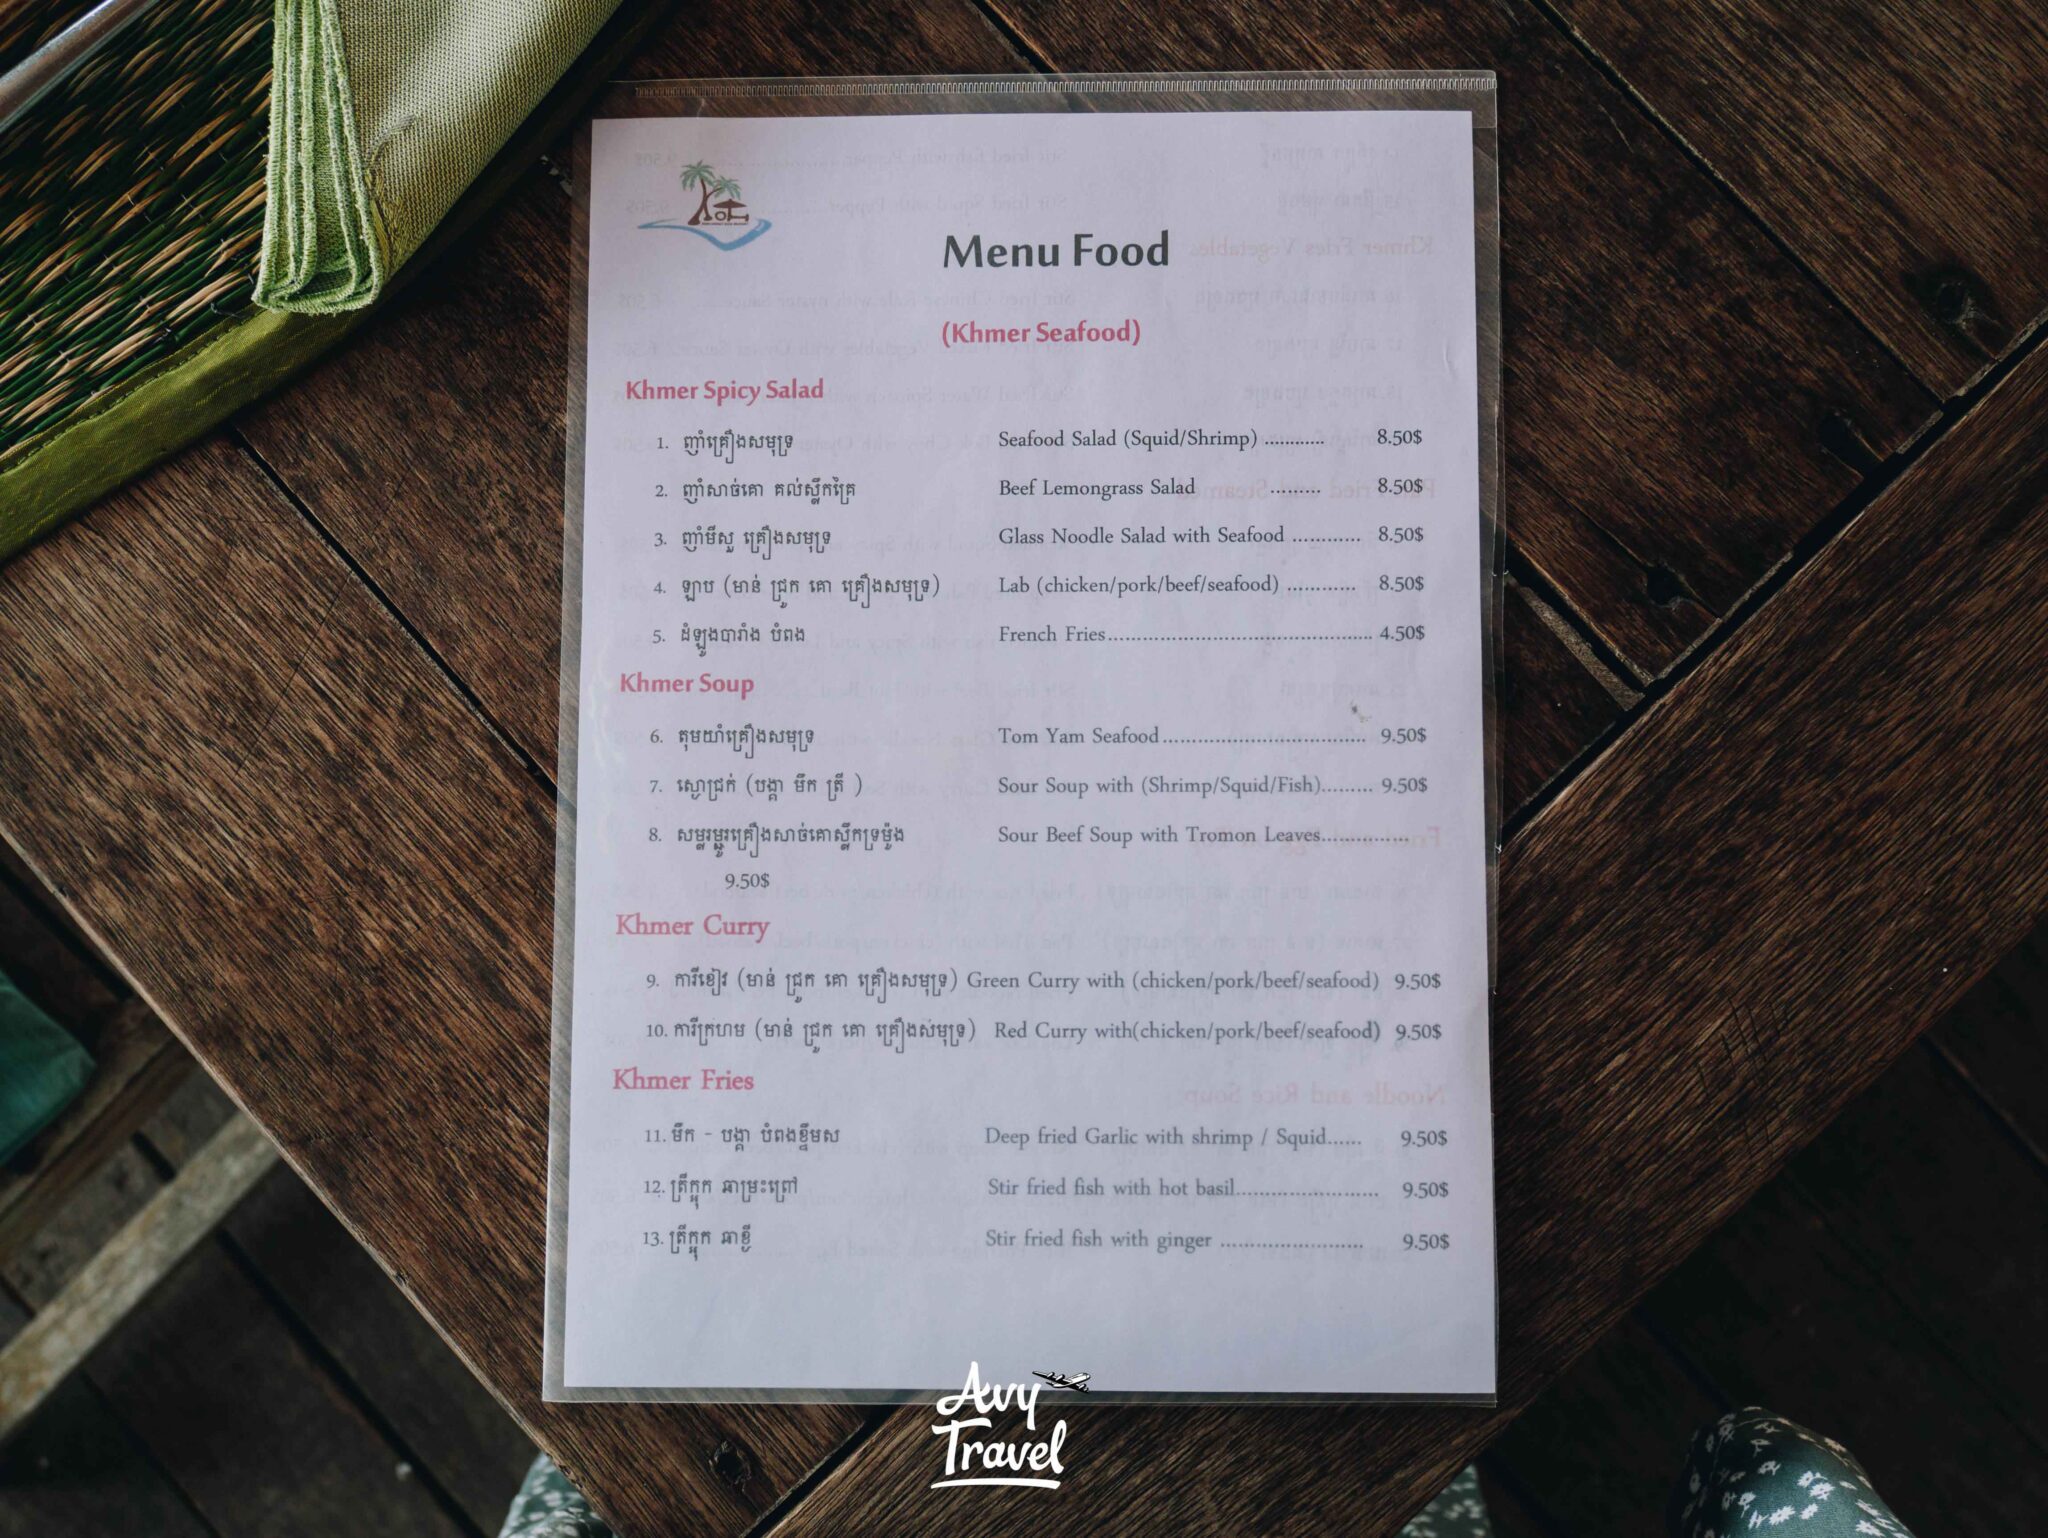 Menu Food
(Khmer Seafood)
Khmer Spicy Salad
1. ញាំគ្រឿងសមុទ្រ Seafood Salad (Squid/Shrimp) ............ 8.50$
2. ញាំសាច់គោ គល់ស្លឹកគ្រៃ Beef Lemongrass Salad ......... 8.50$
3. ញាំមីសួ គ្រឿងសមុទ្រ Glass Noodle Salad with Seafood ............ 8.50$
4. ឡាប (មាន់ ជ្រូក គោ គ្រឿងសមុទ្រ) Lab (chicken/pork/beef/seafood) ............ 8.50$
5. ដំឡូងបារាំង បំពង French Fries.............................................. 4.50$
Khmer Soup
6. តុមយាំគ្រឿងសមុទ្រ Tom Yam Seafood................................... 9.50$
7. ស្ងោជ្រក់ (បង្គា មឹក ត្រី ) Sour Soup with (Shrimp/Squid/Fish)......... 9.50$
8. សម្លរម្ជូរគ្រឿងសាច់គោស្លឹកទ្រម៉ូង Sour Beef Soup with Tromon Leaves...............
9.50$
Khmer Curry
9. ការីខៀវ (មាន់ ជ្រូក គោ គ្រឿងសមុទ្រ) Green Curry with (chicken/pork/beef/seafood) 9.50$
10. ការីក្រហម (មាន់ ជ្រូក គោ គ្រឿងសមុទ្រ) Red Curry with(chicken/pork/beef/seafood) 9.50$
Khmer Fries
11. មឹក - បង្គា បំពងខ្ទឹមស Deep fried Garlic with shrimp / Squid...... 9.50$
12. ត្រីក្អុក ឆាម្រះព្រៅ Stir fried fish with hot basil......................... 9.50$
13. ត្រីក្អុក ឆាខ្ញី Stir fried fish with ginger ......................... 9.50$
Avy
Travel